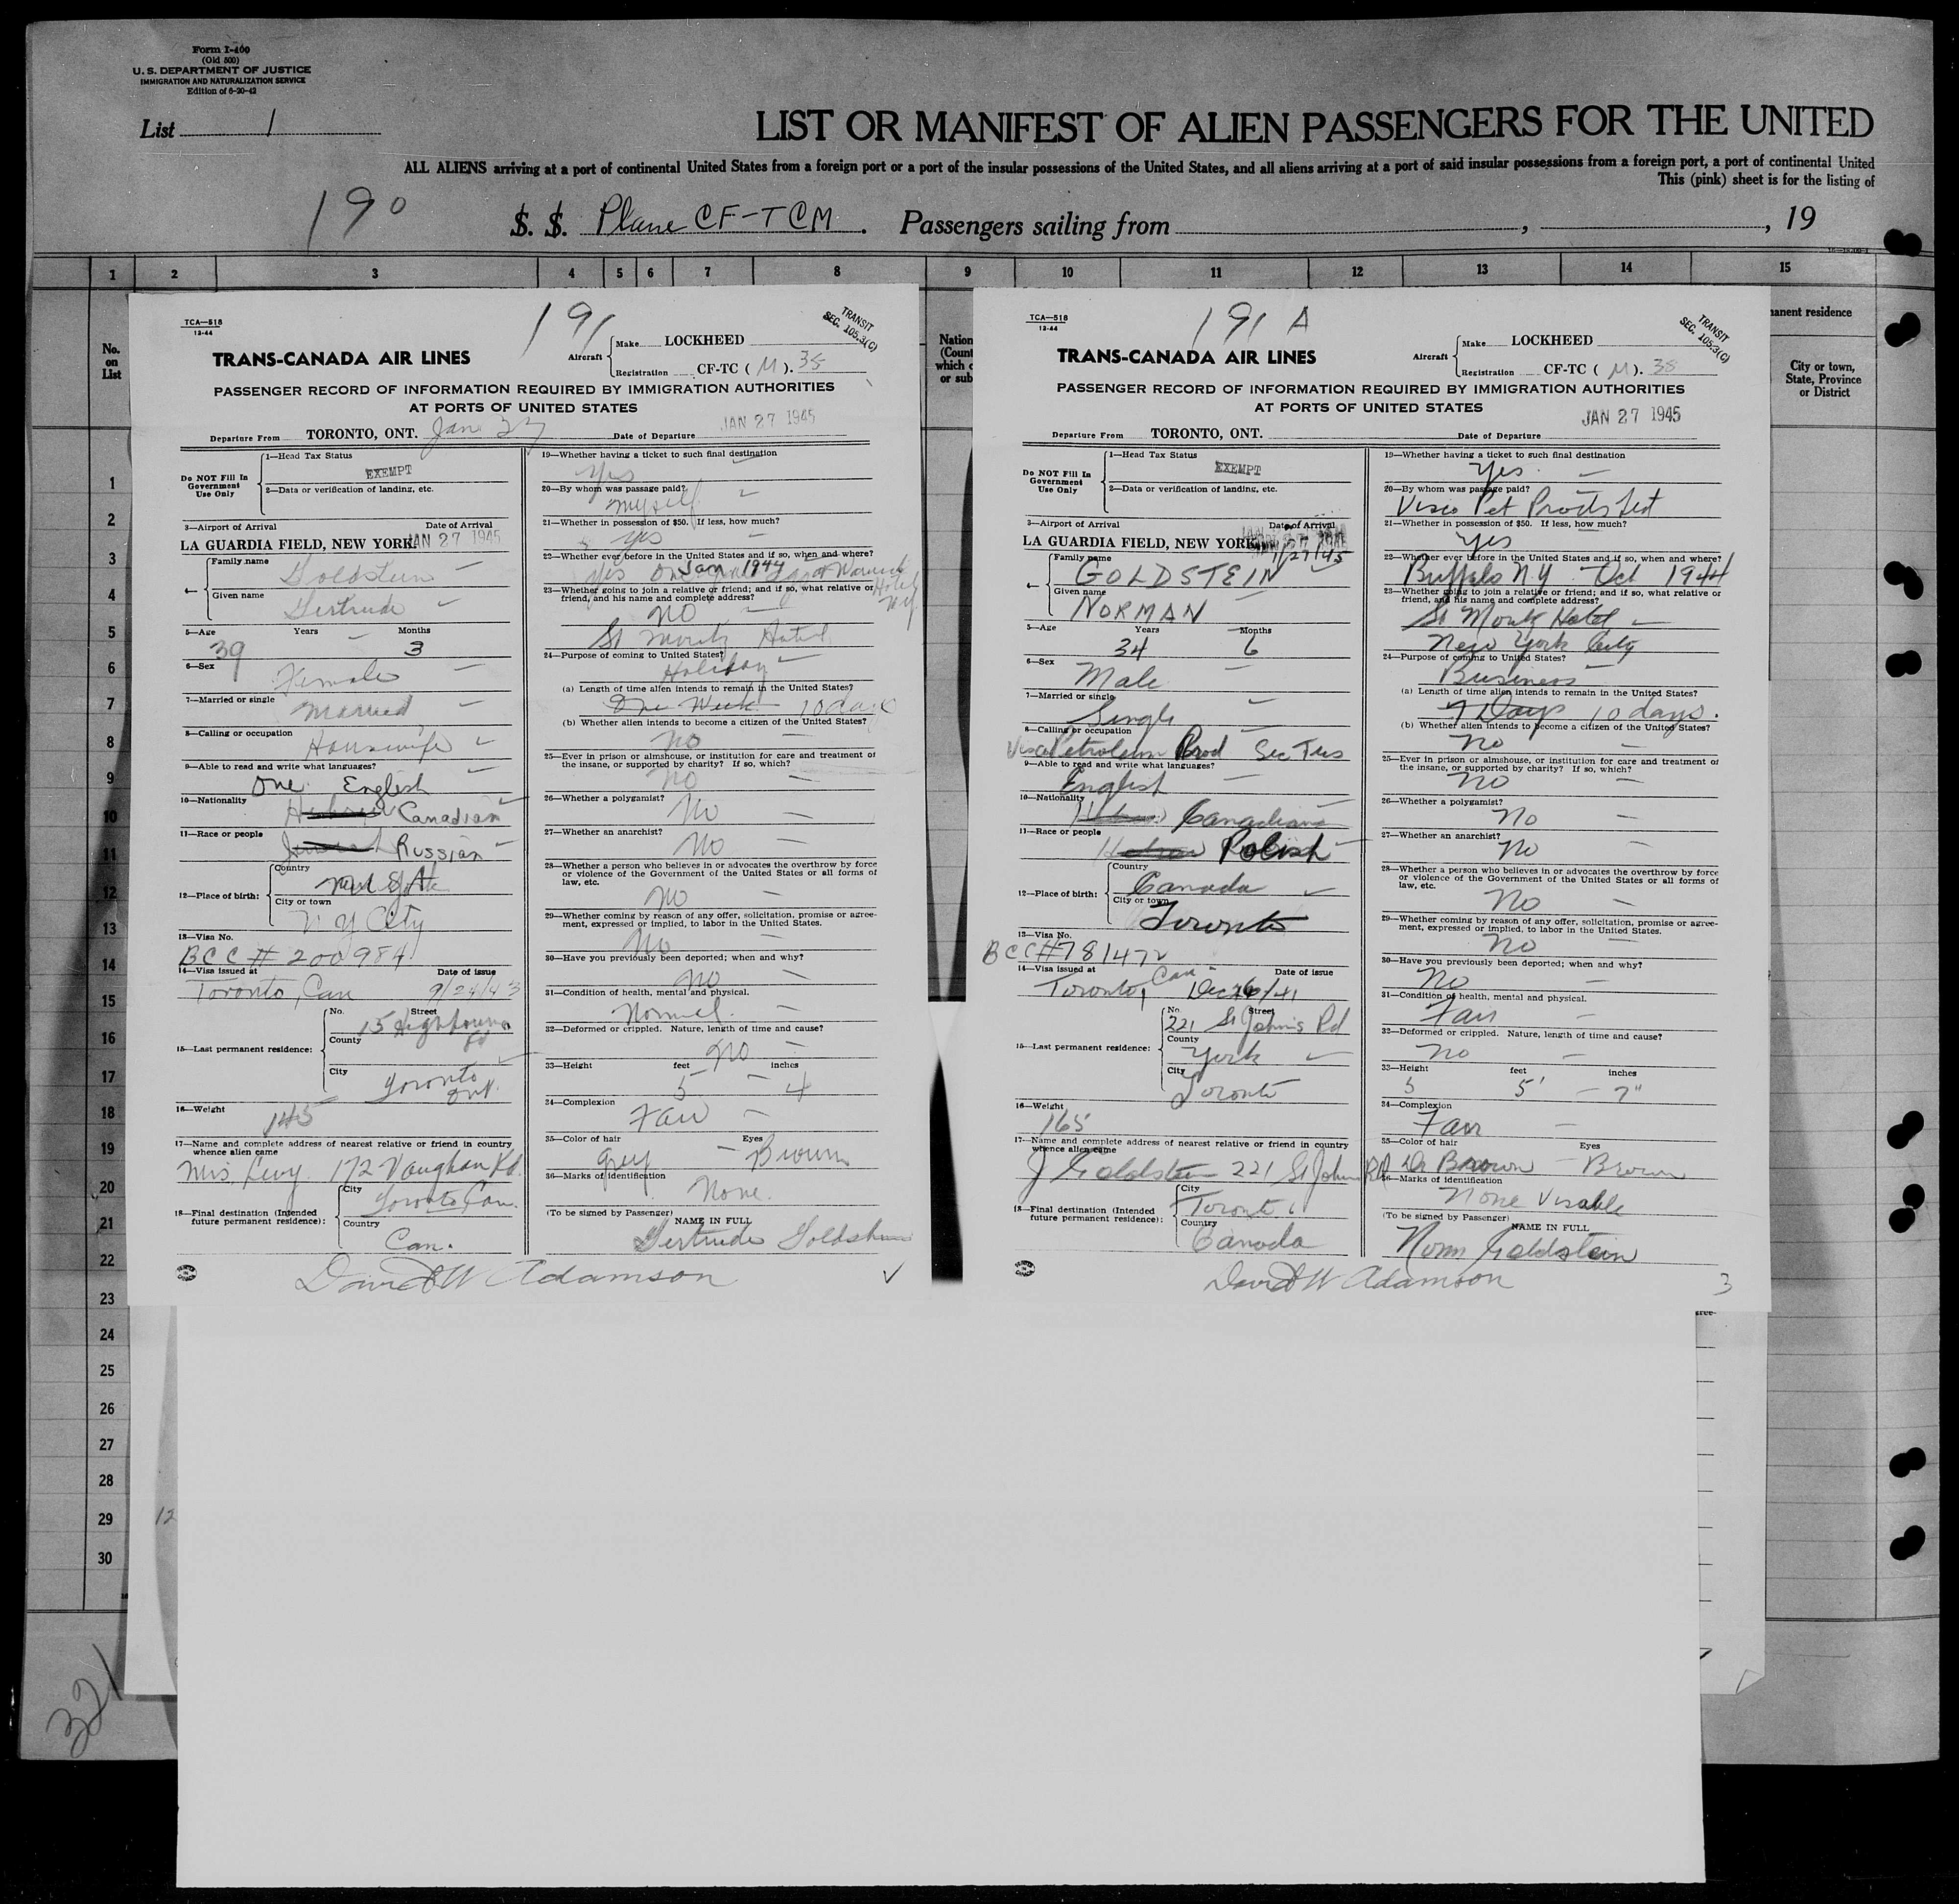 Form I-400
(Old 500)
U. S. DEPARTMENT OF JUSTICE
IMMIGRATION AND NATURALIZATION SERVICE
Edition of 6-20-42
List 1
LIST OR MANIFEST OF ALIEN PASSENGERS FOR THE UNITED
ALL ALIENS arriving at a port of continental United States from a foreign port or a port of the insular possessions of the United States, and all aliens arriving at a port of said insular possessions from a foreign port, a port of continental United
This (pink) sheet is for the listing of
190 S. S. Plane CF-TCM. Passengers sailing from , , 19
1 2 3 4 5 6 7 8 9 10 11 12 13 14 15
No. on List
1
2
3
4
5
6
7
8
9
10
11
12
13
14
15
16
17
18
19
20
21
22
23
24
25
26
27
28
29
30
12
321
Nation
(Count
which o
or sub
anent residence
City or town,
State, Province
or District
TCA—518
12-44
191
TRANSIT
SEC. 105.3(C)
TRANS-CANADA AIR LINES
Aircraft Make LOCKHEED
Registration CF-TC ( M ). 38
PASSENGER RECORD OF INFORMATION REQUIRED BY IMMIGRATION AUTHORITIES
AT PORTS OF UNITED STATES
Departure From TORONTO, ONT. Jan 27 Date of Departure JAN 27 1945
Do NOT Fill In Government Use Only
1—Head Tax Status
EXEMPT
2—Data or verification of landing, etc.
3—Airport of Arrival Date of Arrival
LA GUARDIA FIELD, NEW YORK JAN 27 1945
4— Family name Goldstein
Given name Gertrude
5—Age Years Months
39 3
6—Sex Female
7—Married or single Married
8—Calling or occupation Housewife
9—Able to read and write what languages?
One English
10—Nationality Hebrew Canadian
11—Race or people Russian
12—Place of birth: Country New York
City or town N Y City
13—Visa No.
BCC # 200984
14—Visa issued at Date of issue
Toronto, Can 9/24/43
15—Last permanent residence: No. Street
15 Hightower Rd
County
City Toronto Ont.
16—Weight 145
17—Name and complete address of nearest relative or friend in country whence alien came
Mrs. Levy 172 Vaughan Rd.
18—Final destination (Intended future permanent residence): City Toronto Can.
Country Can.
19—Whether having a ticket to such final destination
Yes
20—By whom was passage paid?
myself
21—Whether in possession of $50. If less, how much?
yes
22—Whether ever before in the United States and if so, when and where?
yes Jan 1944 Warwick Hotel
23—Whether going to join a relative or friend; and if so, what relative or friend, and his name and complete address?
NO
St Moritz Hotel
24—Purpose of coming to United States?
Holiday
(a) Length of time alien intends to remain in the United States?
One Week 10 days
(b) Whether alien intends to become a citizen of the United States?
no
25—Ever in prison or almshouse, or institution for care and treatment of the insane, or supported by charity? If so, which?
no
26—Whether a polygamist?
No
27—Whether an anarchist?
No
28—Whether a person who believes in or advocates the overthrow by force or violence of the Government of the United States or all forms of law, etc.
no
29—Whether coming by reason of any offer, solicitation, promise or agreement, expressed or implied, to labor in the United States.
No
30—Have you previously been deported; when and why?
no
31—Condition of health, mental and physical.
Normal.
32—Deformed or crippled. Nature, length of time and cause?
no
33—Height feet inches
5 4
34—Complexion
Fair
35—Color of hair Eyes
grey Brown
36—Marks of identification
None.
(To be signed by Passenger) NAME IN FULL
Gertrude Goldstein
David W Adamson
TCA—518
12-44
191 A
TRANSIT
SEC. 105.3(C)
TRANS-CANADA AIR LINES
Aircraft Make LOCKHEED
Registration CF-TC ( M ). 38
PASSENGER RECORD OF INFORMATION REQUIRED BY IMMIGRATION AUTHORITIES
AT PORTS OF UNITED STATES
JAN 27 1945
Departure From TORONTO, ONT. Date of Departure
Do NOT Fill In Government Use Only
1—Head Tax Status
EXEMPT
2—Data or verification of landing, etc.
3—Airport of Arrival Date of Arrival
LA GUARDIA FIELD, NEW YORK 1/27/45
4— Family name GOLDSTEIN
Given name NORMAN
5—Age Years Months
34 6
6—Sex Male
7—Married or single Single
8—Calling or occupation
Visco Petroleum Prod Sec Tres
9—Able to read and write what languages?
English
10—Nationality Canadian
11—Race or people Hebrew Polish
12—Place of birth: Country Canada
City or town Toronto
13—Visa No.
BCC#781472
14—Visa issued at Date of issue
Toronto, Can Dec 26/41
15—Last permanent residence: No. Street
221 St John's Rd
County York
City Toronto
16—Weight
165
17—Name and complete address of nearest relative or friend in country whence alien came
J Goldstein 221 St John Rd
18—Final destination (Intended future permanent residence): City Toronto
Country Canada
19—Whether having a ticket to such final destination
Yes
20—By whom was passage paid?
Visco Pet Prods Ltd
21—Whether in possession of $50. If less, how much?
Yes
22—Whether ever before in the United States and if so, when and where?
Buffalo N.Y Oct 1944
23—Whether going to join a relative or friend; and if so, what relative or friend, and his name and complete address?
St Moritz Hotel
New York City
24—Purpose of coming to United States?
Business
(a) Length of time alien intends to remain in the United States?
7 Days 10 days.
(b) Whether alien intends to become a citizen of the United States?
No
25—Ever in prison or almshouse, or institution for care and treatment of the insane, or supported by charity? If so, which?
No
26—Whether a polygamist?
No
27—Whether an anarchist?
No
28—Whether a person who believes in or advocates the overthrow by force or violence of the Government of the United States or all forms of law, etc.
No
29—Whether coming by reason of any offer, solicitation, promise or agreement, expressed or implied, to labor in the United States.
No
30—Have you previously been deported; when and why?
No
31—Condition of health, mental and physical.
Fair
32—Deformed or crippled. Nature, length of time and cause?
No
33—Height feet inches
5 5' 7"
34—Complexion
Fair
35—Color of hair Eyes
Dr Brown Brown
36—Marks of identification
None Visable
(To be signed by Passenger) NAME IN FULL
Norm Goldstein
David W Adamson 3